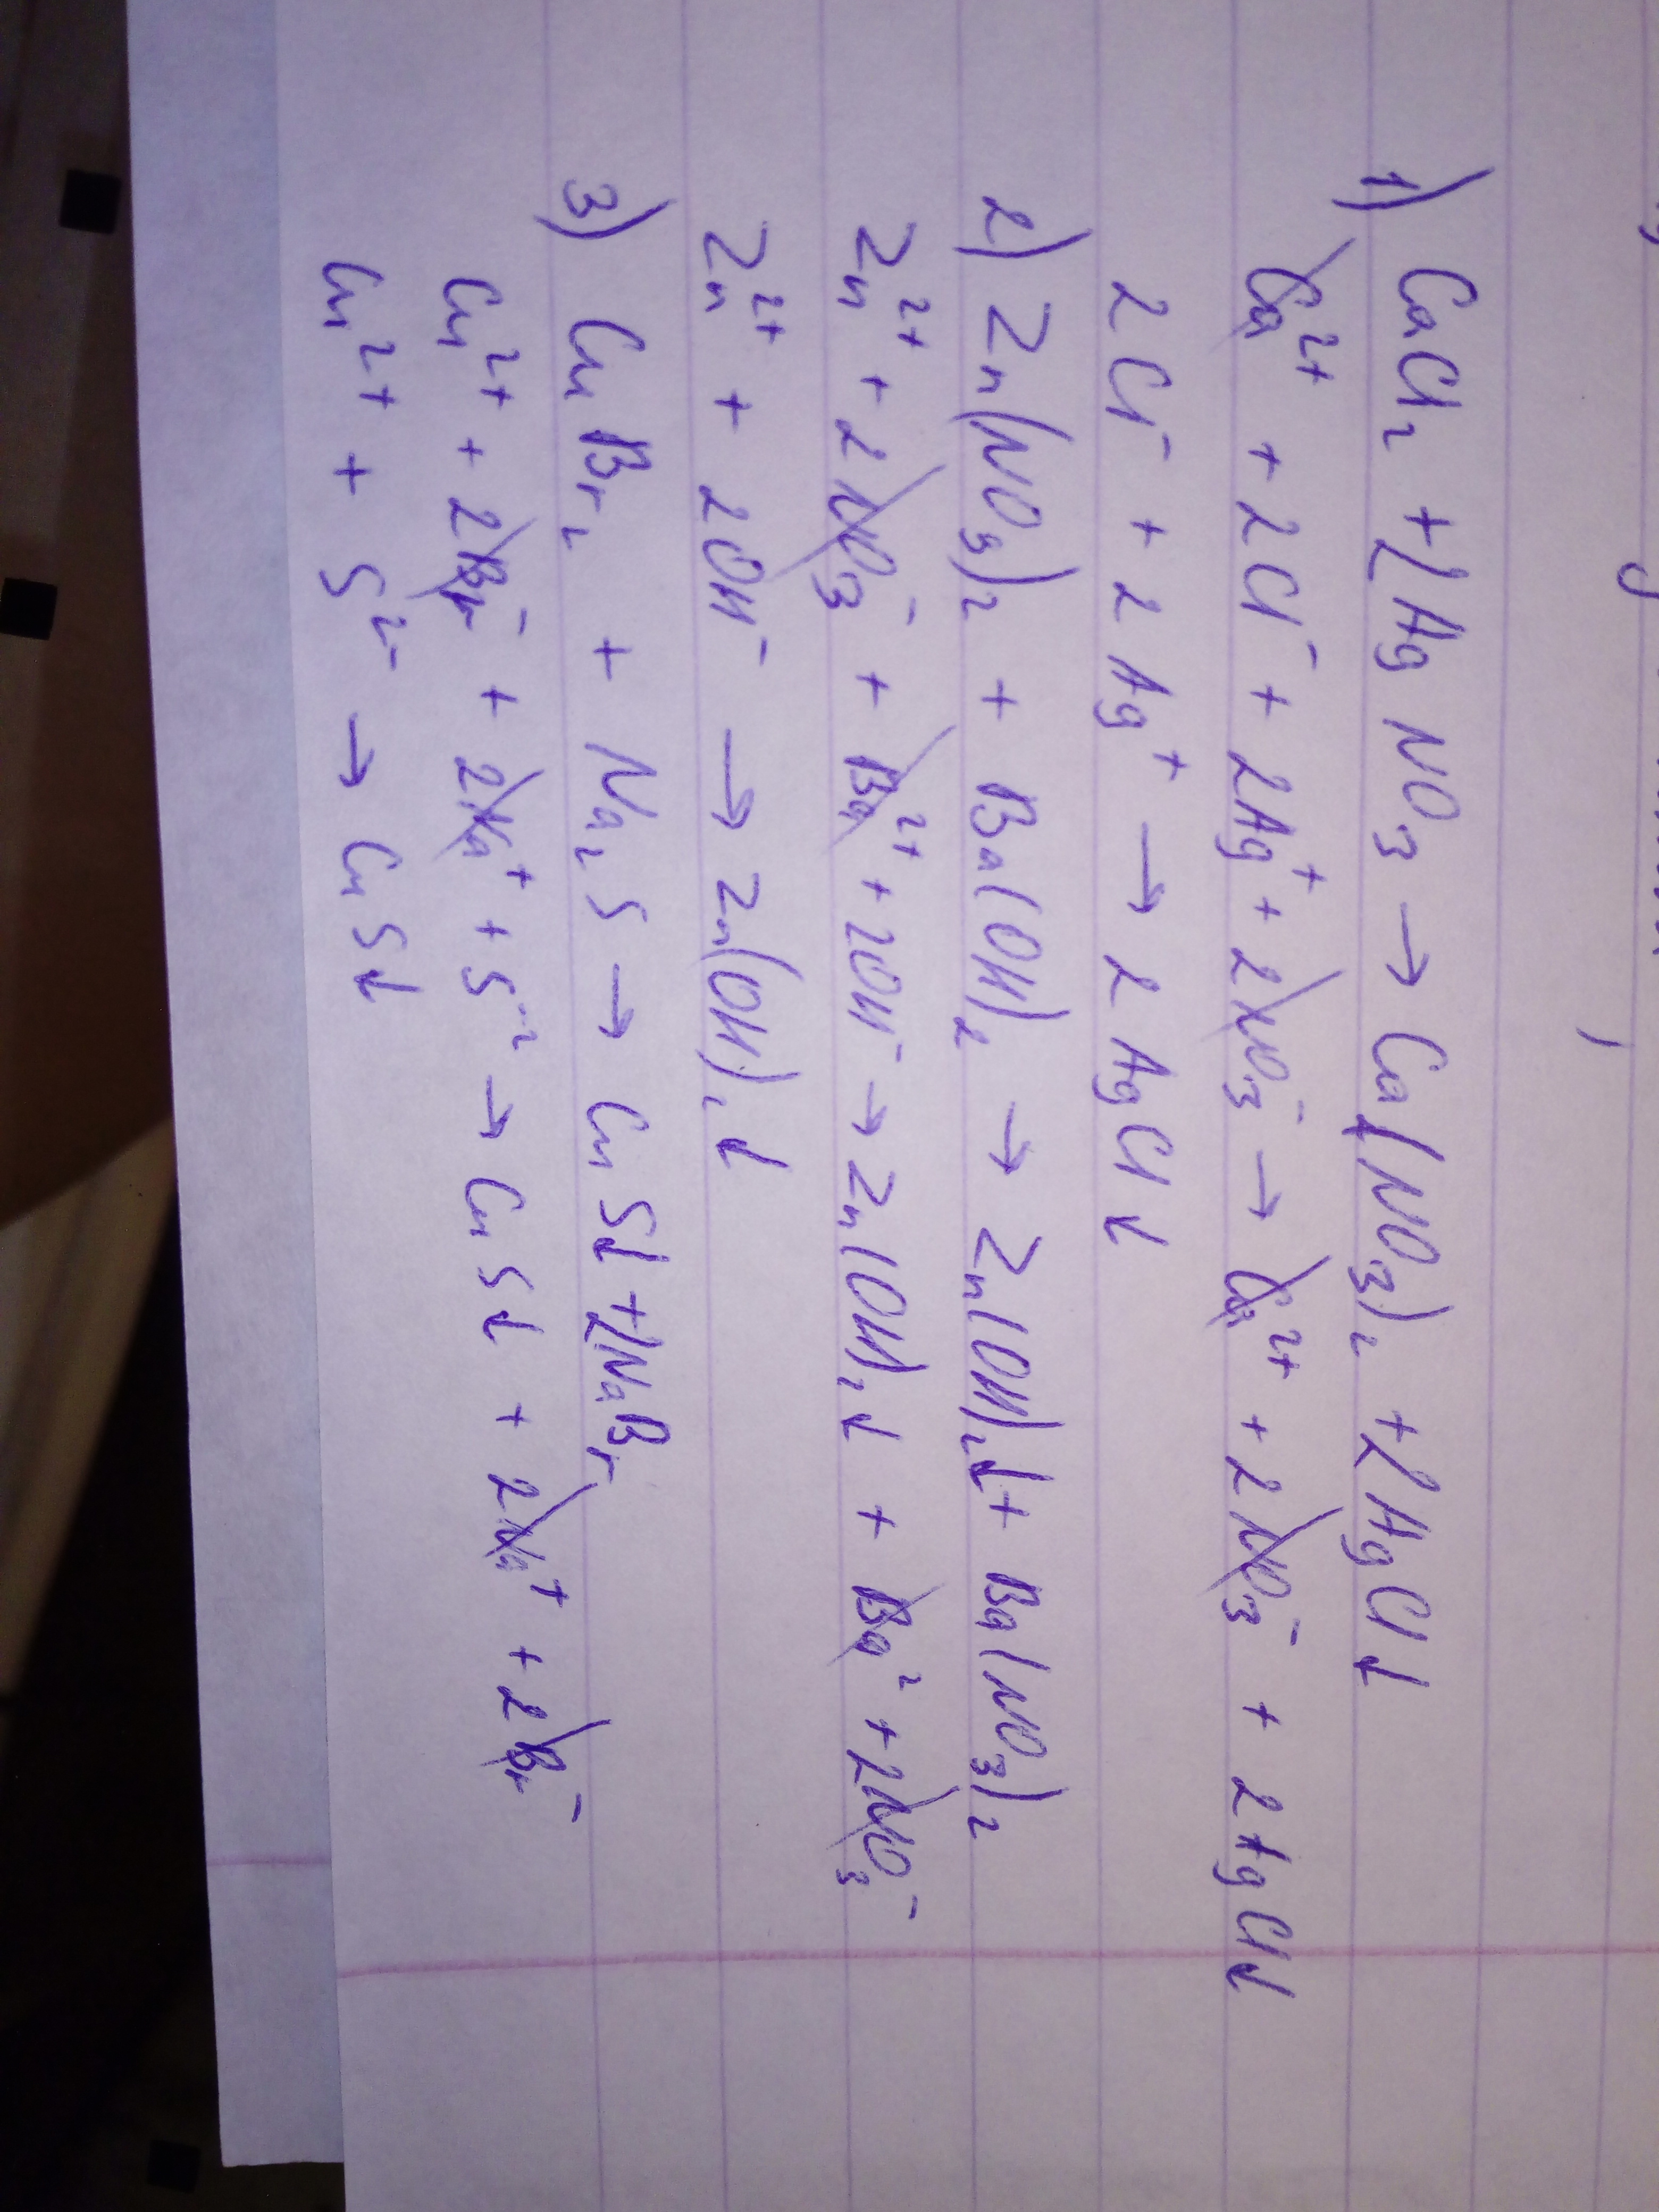 1) CaCl₂ + 2AgNO₃ → Ca(NO₃)₂ + 2AgCl↓
Ca²⁺ + 2Cl⁻ + 2Ag⁺ + 2NO₃⁻ → Ca²⁺ + 2NO₃⁻ + 2AgCl↓
2Cl⁻ + 2Ag⁺ → 2AgCl↓
2) Zn(NO₃)₂ + Ba(OH)₂ → Zn(OH)₂↓ + Ba(NO₃)₂
Zn²⁺ + 2NO₃⁻ + Ba²⁺ + 2OH⁻ → Zn(OH)₂↓ + Ba² + 2NO₃⁻
Zn²⁺ + 2OH⁻ → Zn(OH)₂↓
3) CuBr₂ + Na₂S → CuS↓ + 2NaBr
Cu²⁺ + 2Br⁻ + 2Na⁺ + S⁻² → CuS↓ + 2Na⁺ + 2Br⁻
Cu²⁺ + S²⁻ → CuS↓